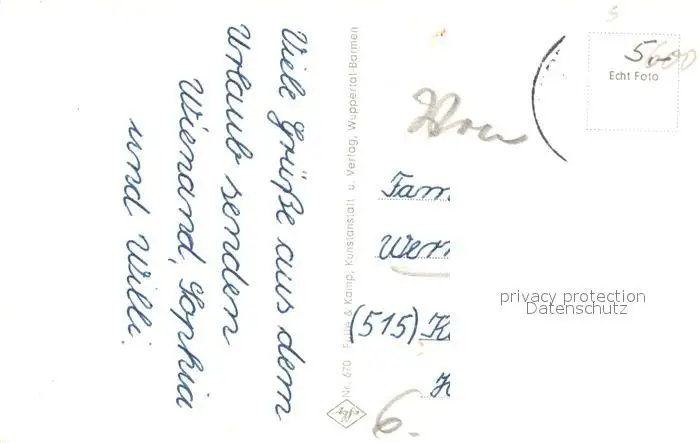 Viele Grüße aus dem
Urlaub senden
Wienand, Sophia
und Willi.
Nr. 670 Fülle & Kamp, Kunstanstalt u. Verlag, Wuppertal-Barmen
Agfa
5
5,-
5600
Echt Foto
Fam
Wern
(515) K
K
6.-
privacy protection
Datenschutz